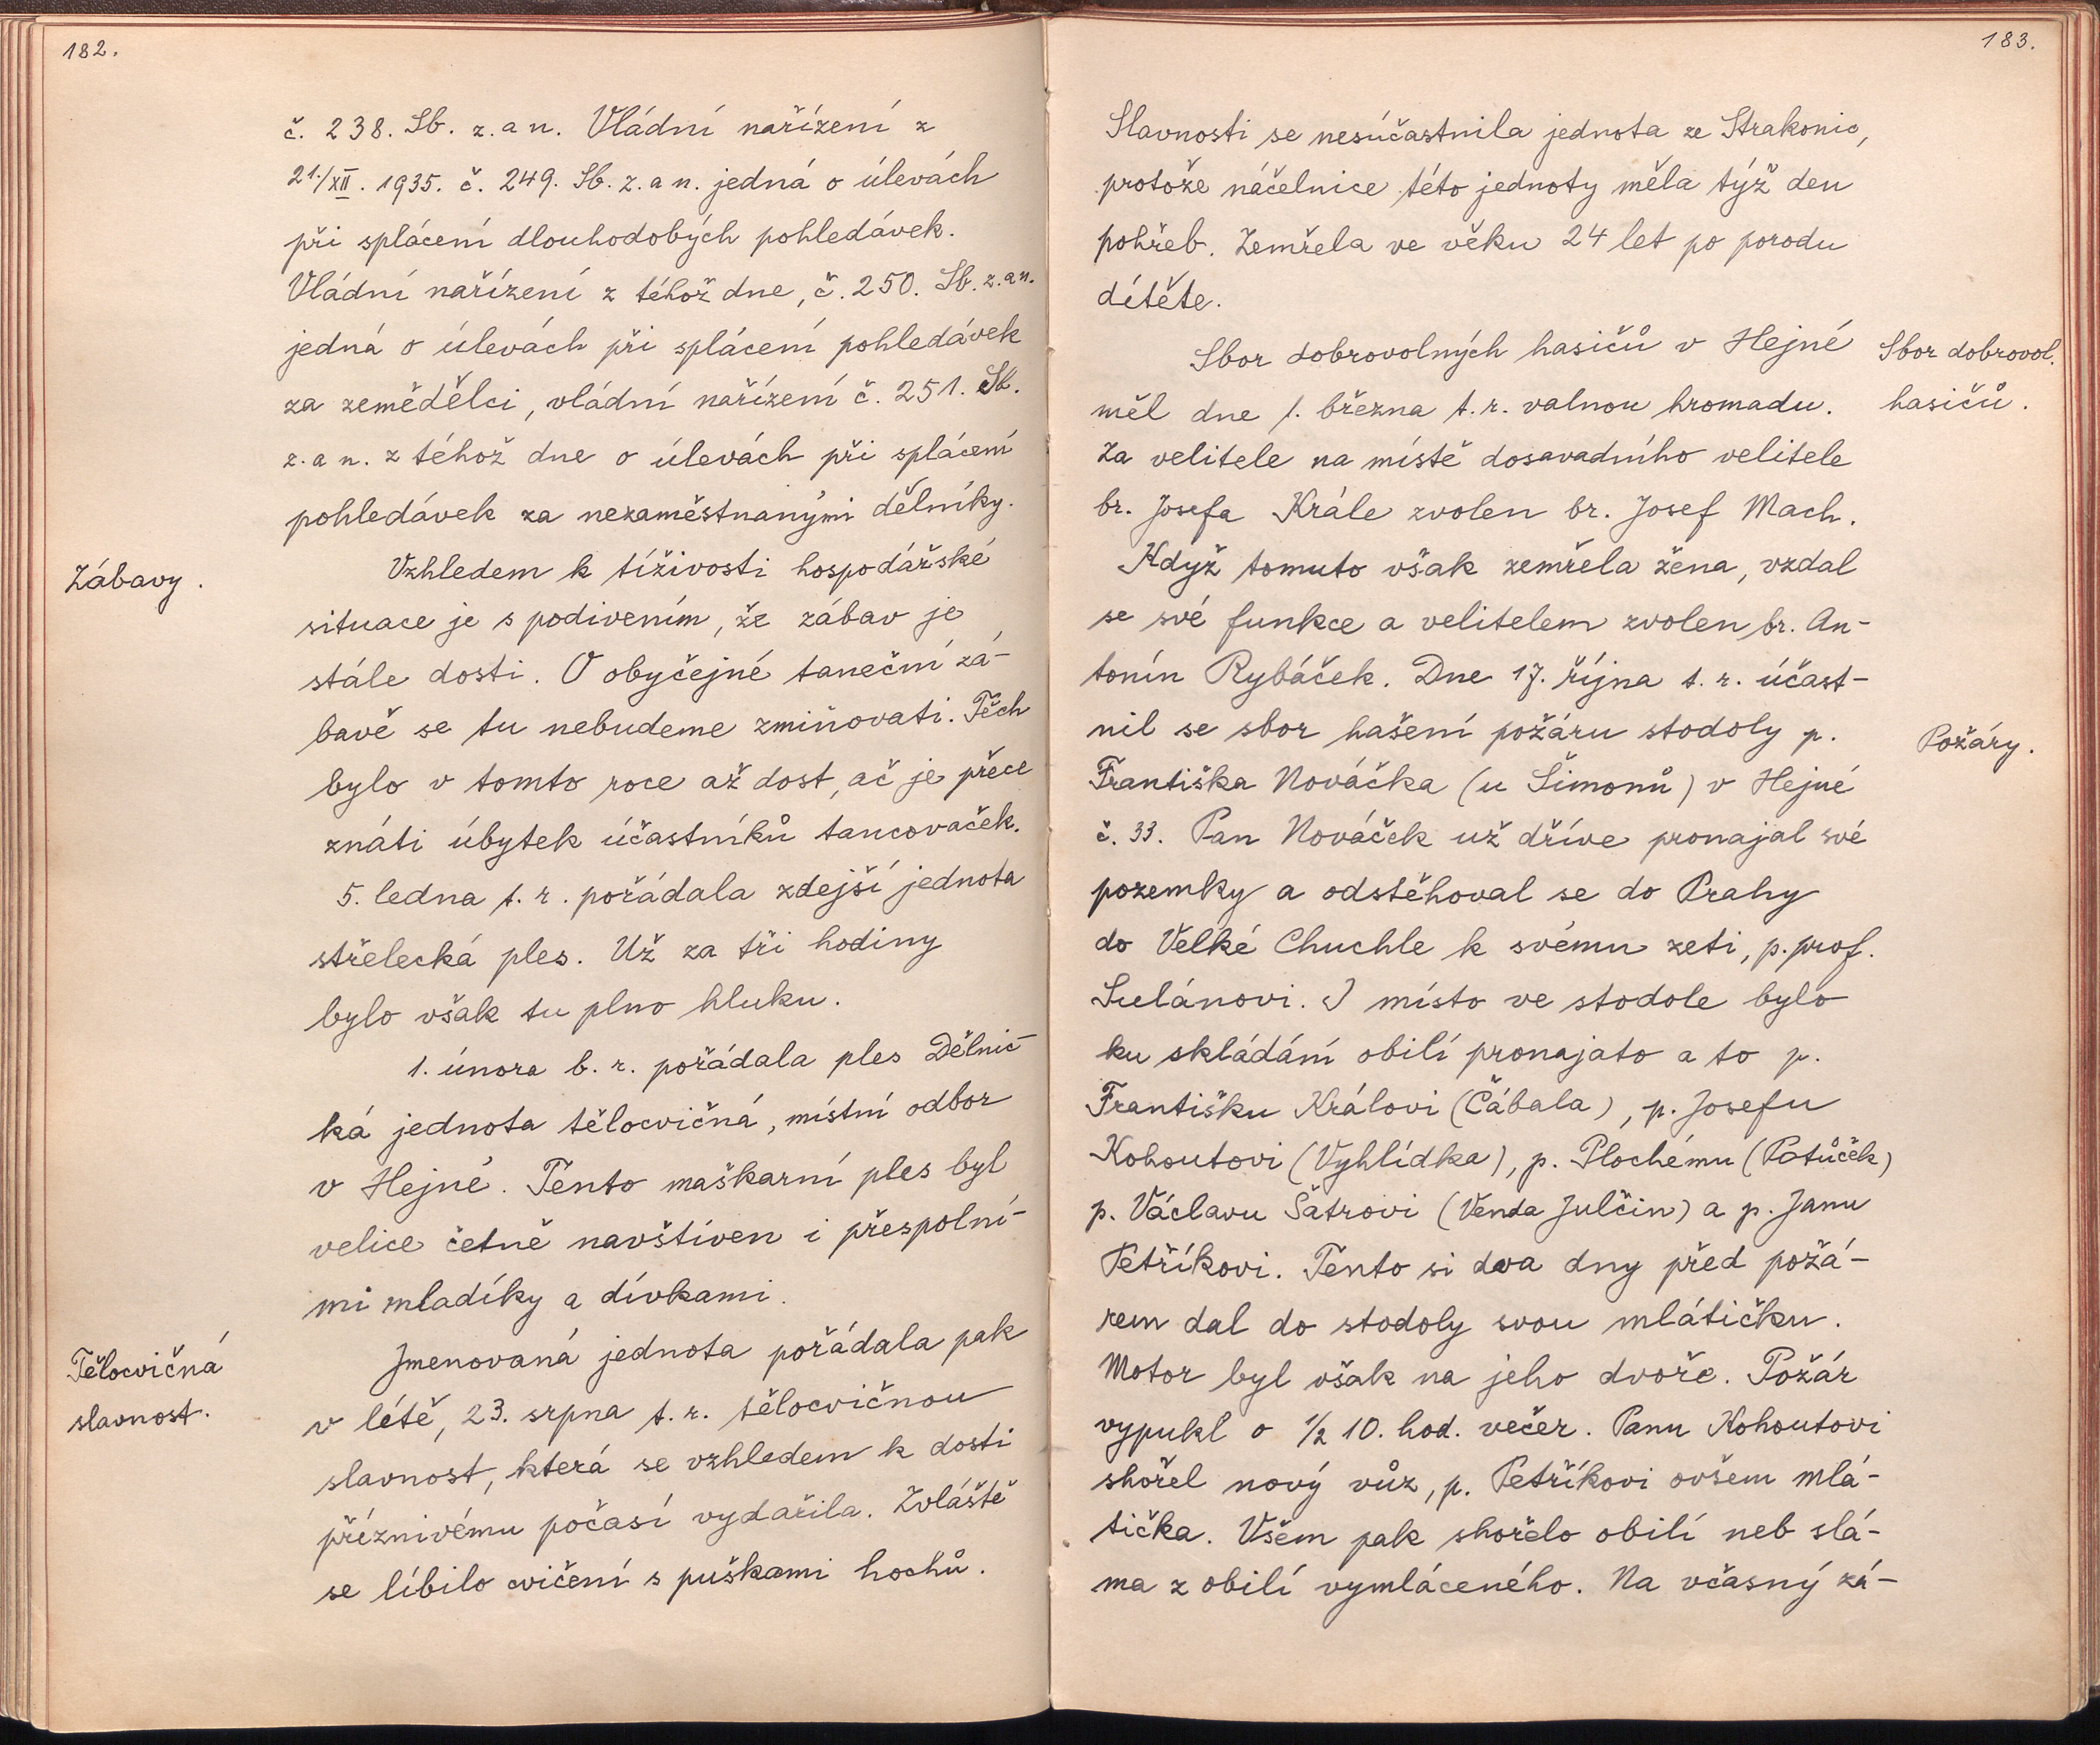 182.
č. 238. Sb. z. a n. Vládní nařízení z
21./XII. 1935. č. 249. Sb. z. a n. jedná o úlevách
při splácení dlouhodobých pohledávek.
Vládní nařízení z téhož dne, č. 250. Sb. z. a n.
jedná o úlevách při splácení pohledávek
za zemědělci, vládní nařízení č. 251. Sb.
z. a n. z téhož dne o úlevách při splácení
pohledávek za nezaměstnanými dělníky.
Zábavy.
Vzhledem k tíživosti hospodářské
situace je s podivením, že zábav je
stále dosti. O obyčejné taneční zá-
bavě se tu nebudeme zmiňovati. Těch
bylo v tomto roce až dost, ač je přece
znáti úbytek účastníků tancovaček.
5. ledna t. r. pořádala zdejší jednota
střelecká ples. Už za tři hodiny
bylo však tu plno hluku.
1. února b. r. pořádala ples Dělnic-
ká jednota tělocvičná, místní odbor
v Hejné. Tento maškarní ples byl
velice četně navštíven i přespolní-
mi mladíky a dívkami.
Tělocvičná
slavnost.
Jmenovaná jednota pořádala pak
v létě, 23. srpna t. r. tělocvičnou
slavnost, která se vzhledem k dosti
příznivému počasí vydařila. Zvláště
se líbilo cvičení s puškami hochů.
183.
Slavnosti se nesúčastnila jednota ze Strakonic,
protože náčelnice této jednoty měla týž den
pohřeb. Zemřela ve věku 24 let po porodu
dítěte.
Sbor dobrovolných hasičů v Hejné
měl dne 1. března t. r. valnou hromadu.
Sbor dobrovol.
hasičů.
Za velitele na místě dosavadního velitele
br. Josefa Krále zvolen br. Josef Mach.
Když tomuto však zemřela žena, vzdal
se své funkce a velitelem zvolen br. An-
tonín Rybáček. Dne 17. října t. r. účast-
nil se sbor hašení požáru stodoly p.
Požáry.
Františka Nováčka (u Šimonů) v Hejné
č. 33. Pan Nováček už dříve pronajal své
pozemky a odstěhoval se do Prahy
do Velké Chuchle k svému zeti, p. prof.
Sulánovi. I místo ve stodole bylo
ku skládání obilí pronajato a to p.
Františku Královi (Čábala), p. Josefu
Kohoutovi (Vyhlídka), p. Plochému (Potůček)
p. Václavu Šatrovi (Venda Julčin) a p. Janu
Petříkovi. Tento si dva dny před požá-
rem dal do stodoly svou mlátičku.
Motor byl však na jeho dvoře. Požár
vypukl o ½ 10. hod. večer. Panu Kohoutovi
shořel nový vůz, p. Petříkovi ovšem mlá-
tička. Všem pak shořelo obilí neb slá-
ma z obilí vymláceného. Na včasný zá-